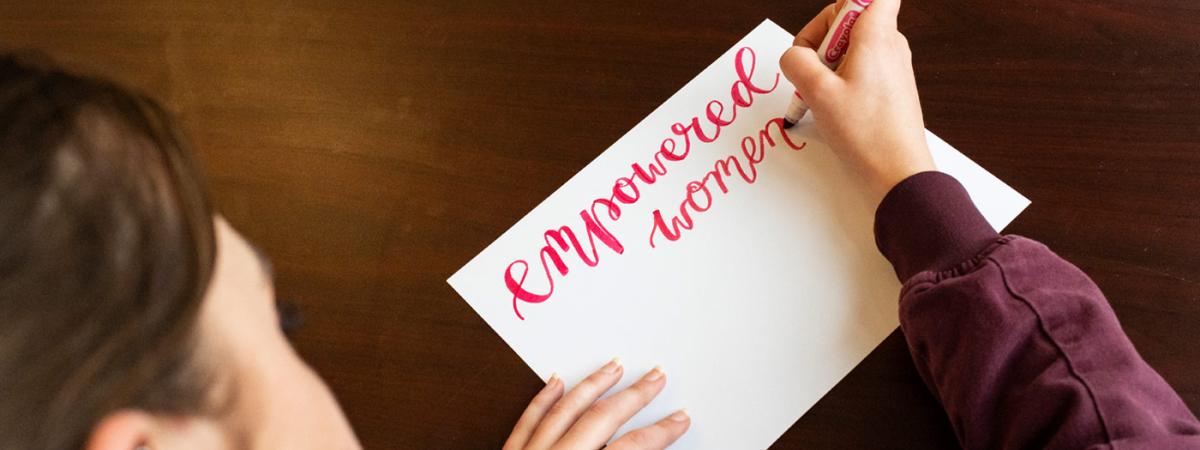 empowered
women
Crayola